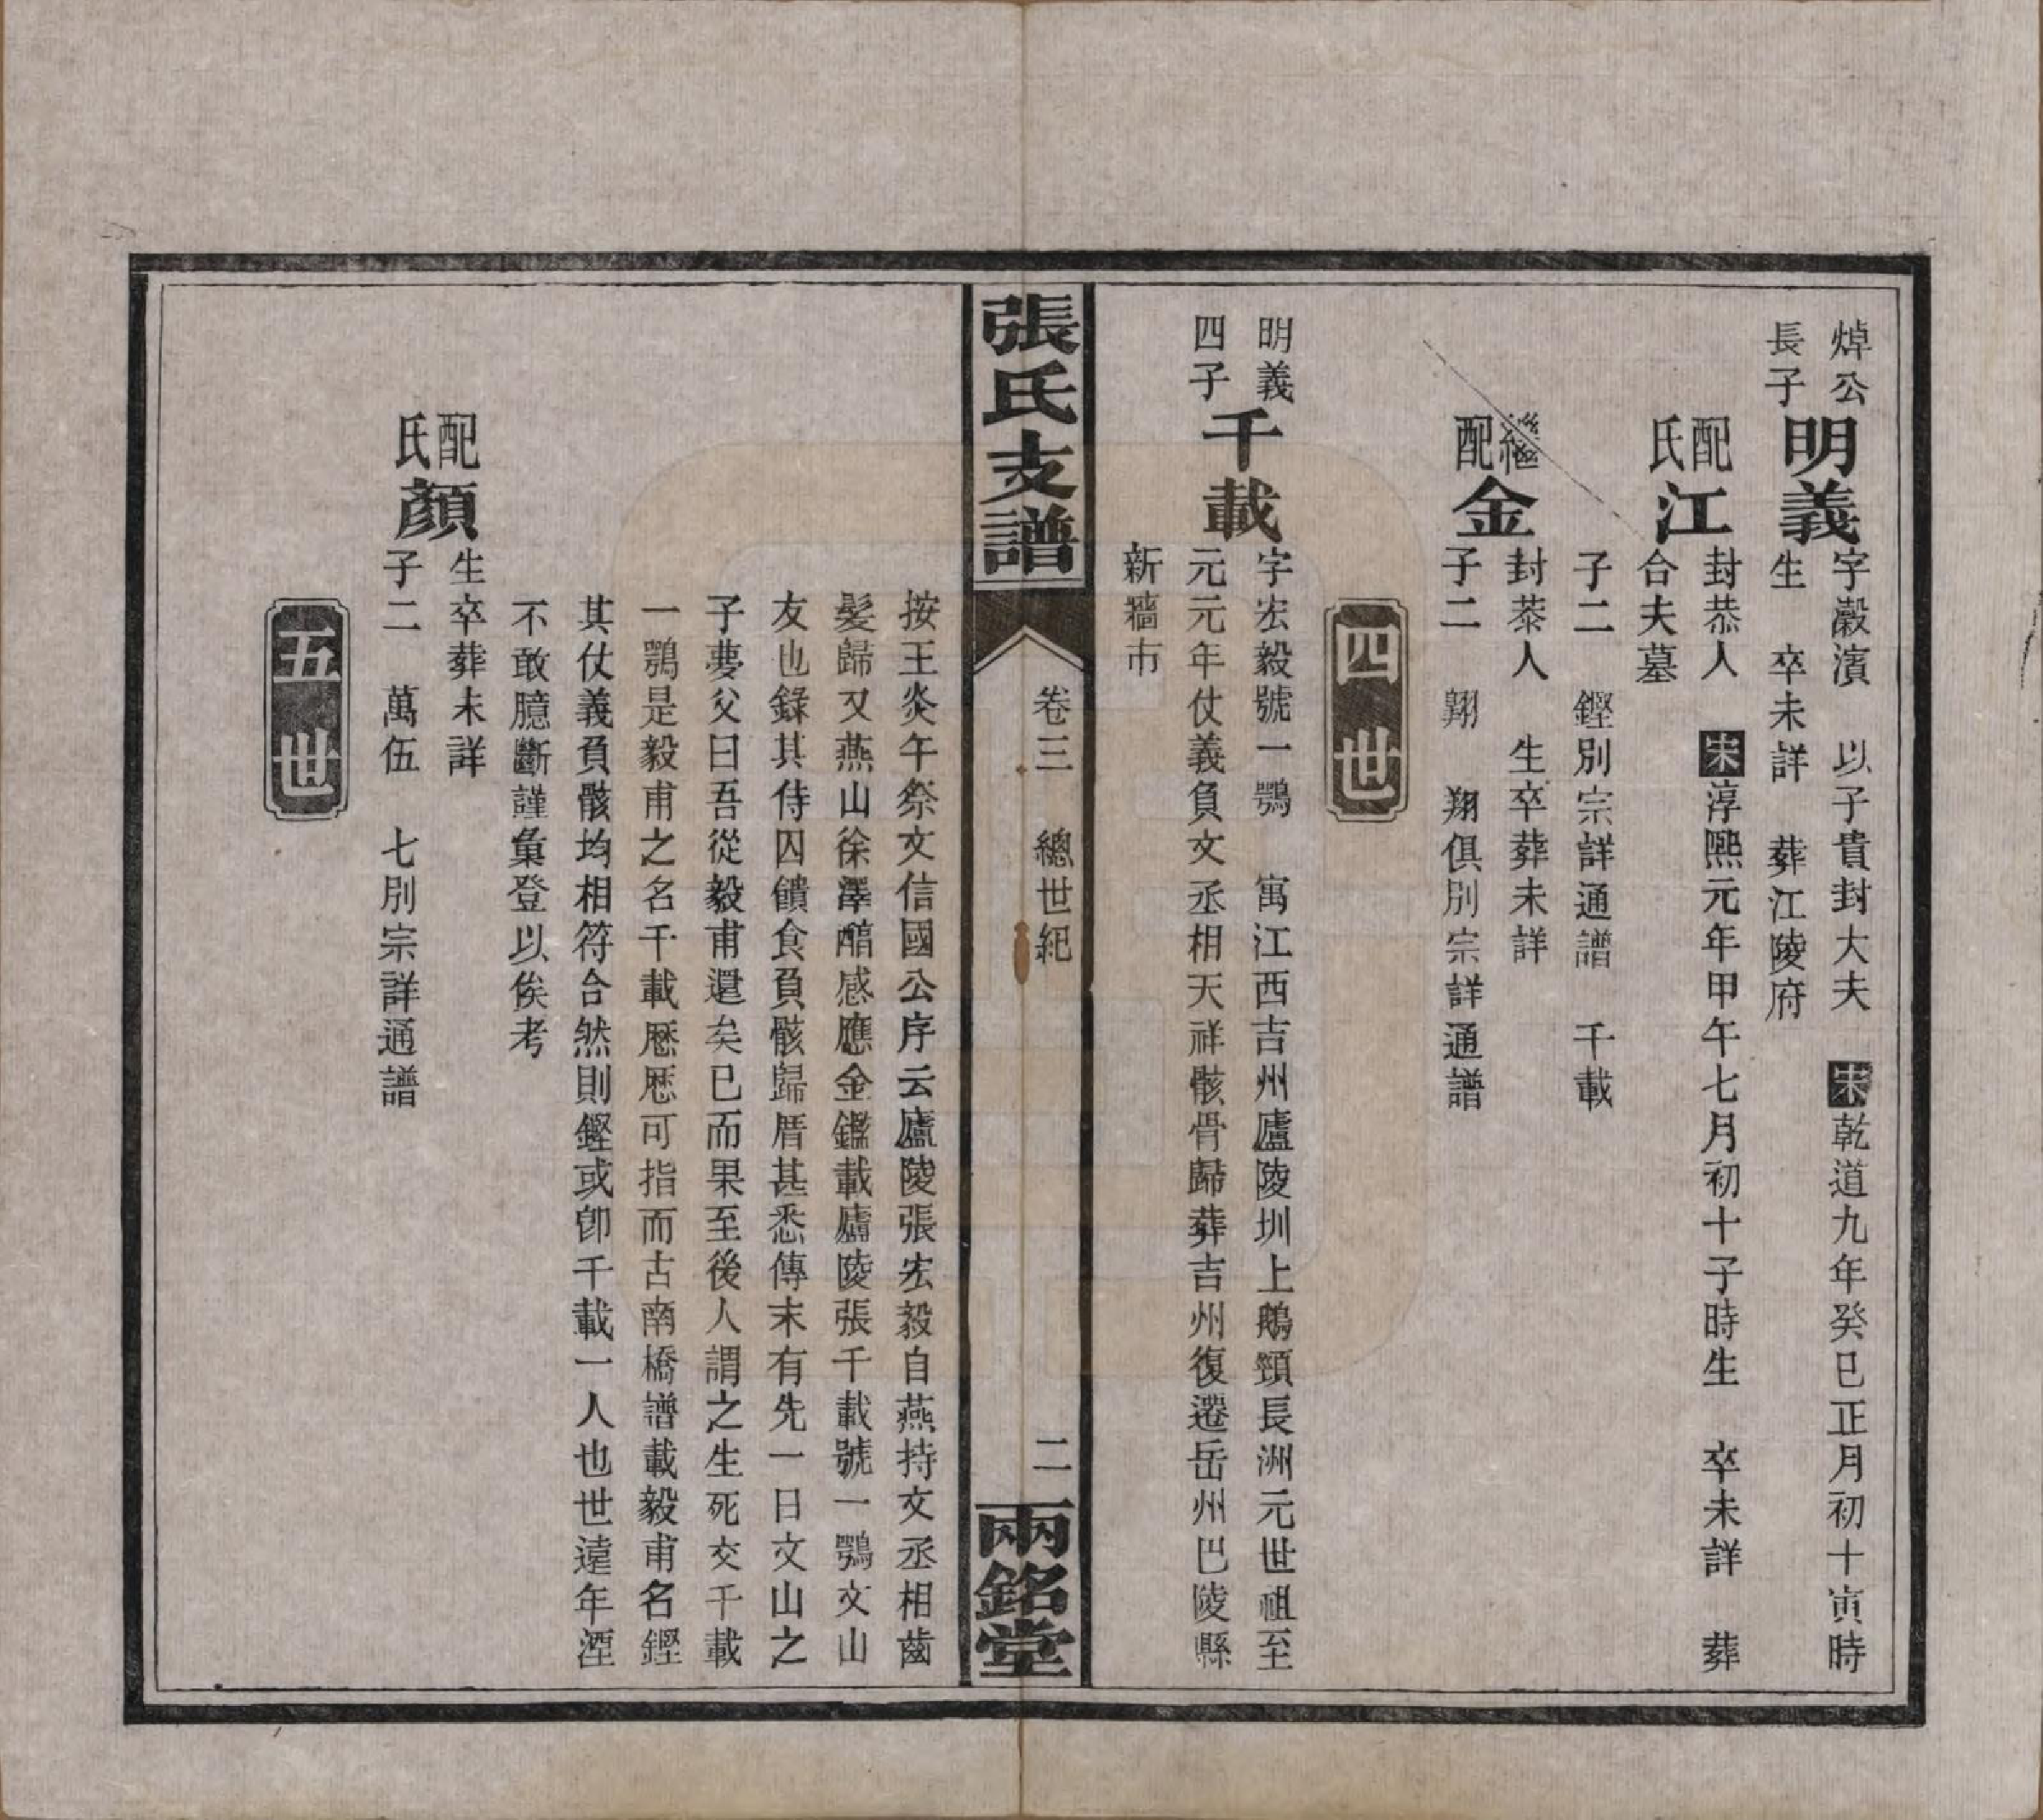 焯公
長子
明義
字瀫濱　以子貴封大夫　宋乾道九年癸巳正月初十寅時
生　卒未詳　葬江陵府
配
氏
江
封恭人　宋淳熙元年甲午七月初十子時生　卒未詳　葬
合夫墓
子二　鏗別宗詳通譜　千載
繼
配
金
封恭人　生卒葬未詳
子二　翙　翔俱別宗詳通譜
四世
明義
四子
千載
字宏毅號一鶚　寓江西吉州廬陵圳上鵝頸長洲元世祖至
元元年仗義負文丞相天祥骸骨歸葬吉州復遷岳州巴陵縣
新牆市
張氏支譜
卷三　總世紀
二
兩銘堂
按王炎午祭文信國公序云廬陵張宏毅自燕持文丞相齒
髮歸又燕山徐澤醕感應金鑑載廬陵張千載號一鶚文山
友也錄其侍囚饋食負骸歸厝甚悉傳末有先一日文山之
子夢父曰吾從毅甫還矣已而果至後人謂之生死交千載
一鶚是毅甫之名千載歷歷可指而古南橋譜載毅甫名鏗
其仗義負骸均相符合然則鏗或卽千載一人也世遠年湮
不敢臆斷謹彙登以俟考
配
氏
顏
生卒葬未詳
子二　萬伍　七別宗詳通譜
五世